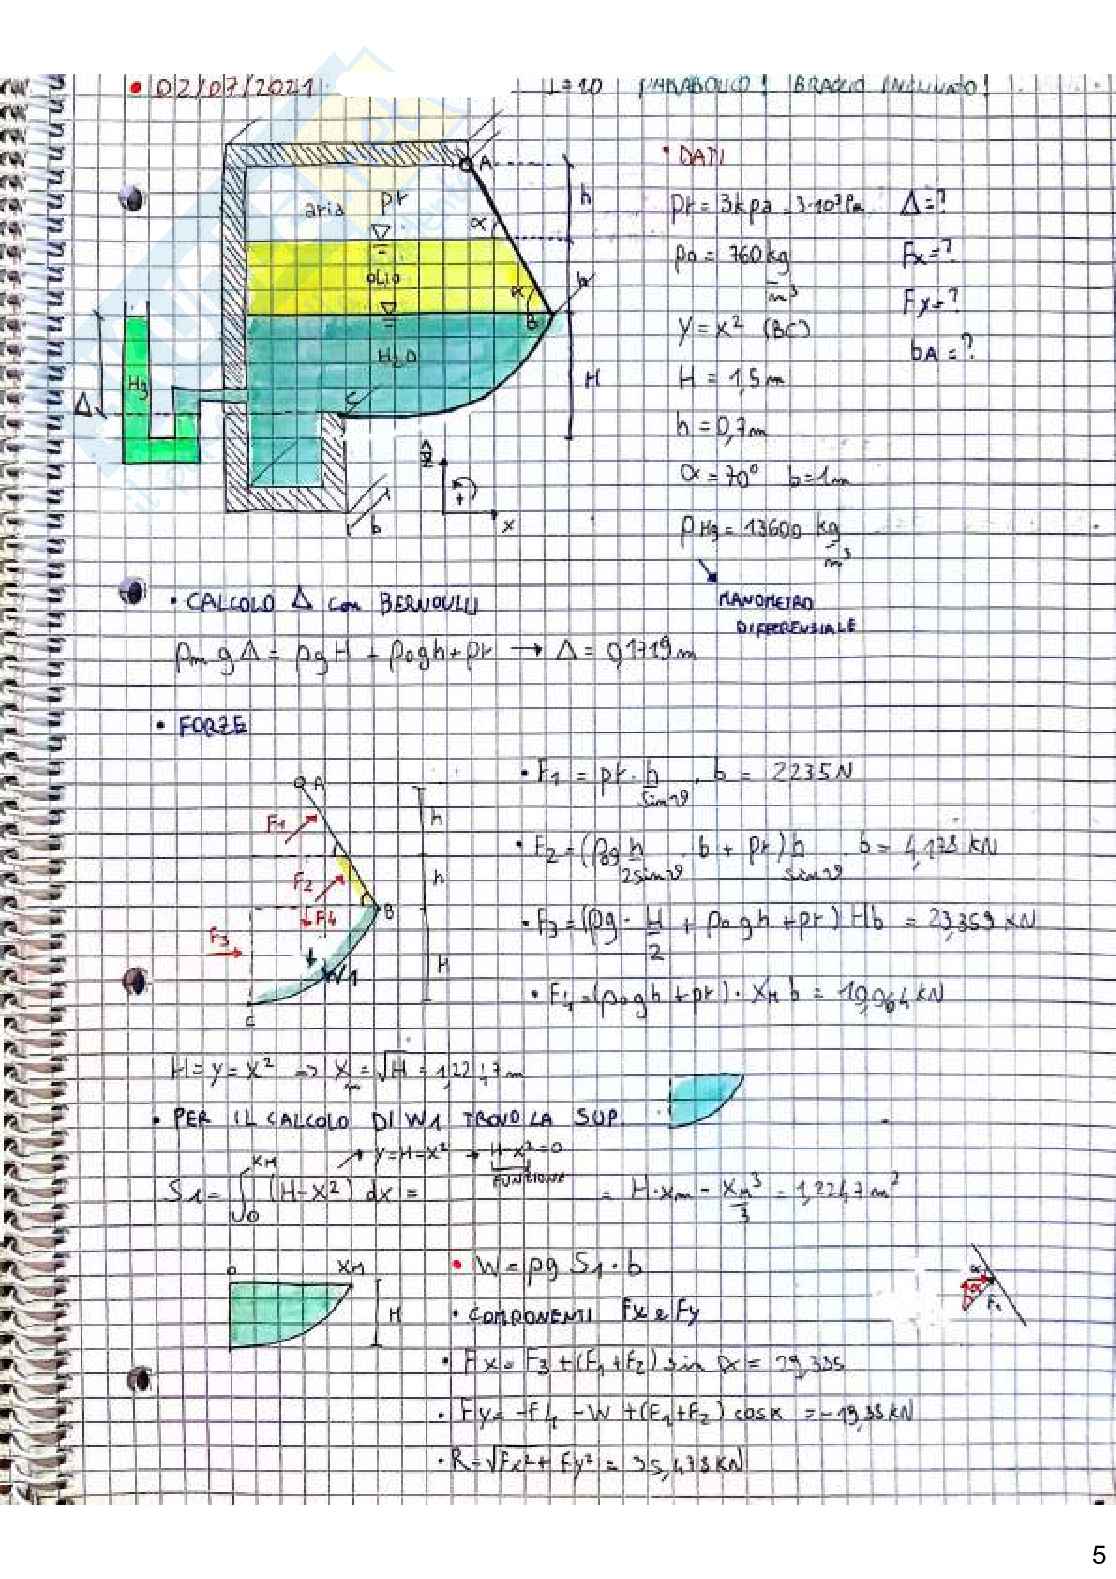 • 02/07/2021
PARABOLICO! BRACCIO INCLINATO!
A
h
aria pr
α
OLIO
α
B
H2O
H
Hg
Δ
C
z
+
x
b
• DATI
pr = 3 kpa = 3·10³ Pa Δ=?
ρo = 760 kg/m³ Fx=?
Fy=?
y = x² (BC)
bA=?
H = 1,5 m
h = 0,7 m
α = 70° b = 1 m
ρHg = 13600 kg/m³
MANOMETRO
DIFFERENZIALE
• CALCOLO Δ con BERNOULLI
ρm g Δ = ρgH + ρogh + pr → Δ = 0,1719 m
• FORZE
A
F1
h
F2
h
F4
B
F3
W1
H
C
• F1 = pr · h/sinϑ · b = 2235 N
• F2 = (ρog h/2sinϑ · b + pr) h/sinϑ · b = 4,178 KN
• F3 = (ρg · H/2 + ρogh + pr) Hb = 23,359 KN
• F4 = (ρogh + pr) · XM b = 10,064 KN
H = y = x² ⇒ Xm = √H = 1,2247 m
• PER IL CALCOLO DI W1 TROVO LA SUP.
↗ y=H=x² → H-x²=0
FUNZIONE
S1 = ∫0^XM (H-x²) dx = = H·xm - XM³/3 = 1,2247 m²
0 XM
H
• W = ρg S1 · b
• COMPONENTI Fx e Fy
• Fx = F3 + (F1+F2) sin α = 29,335
• Fy = -F4 - W + (F1+F2) cosα = -19,88 KN
• R = √Fx² + Fy² = 35,438 KN
5